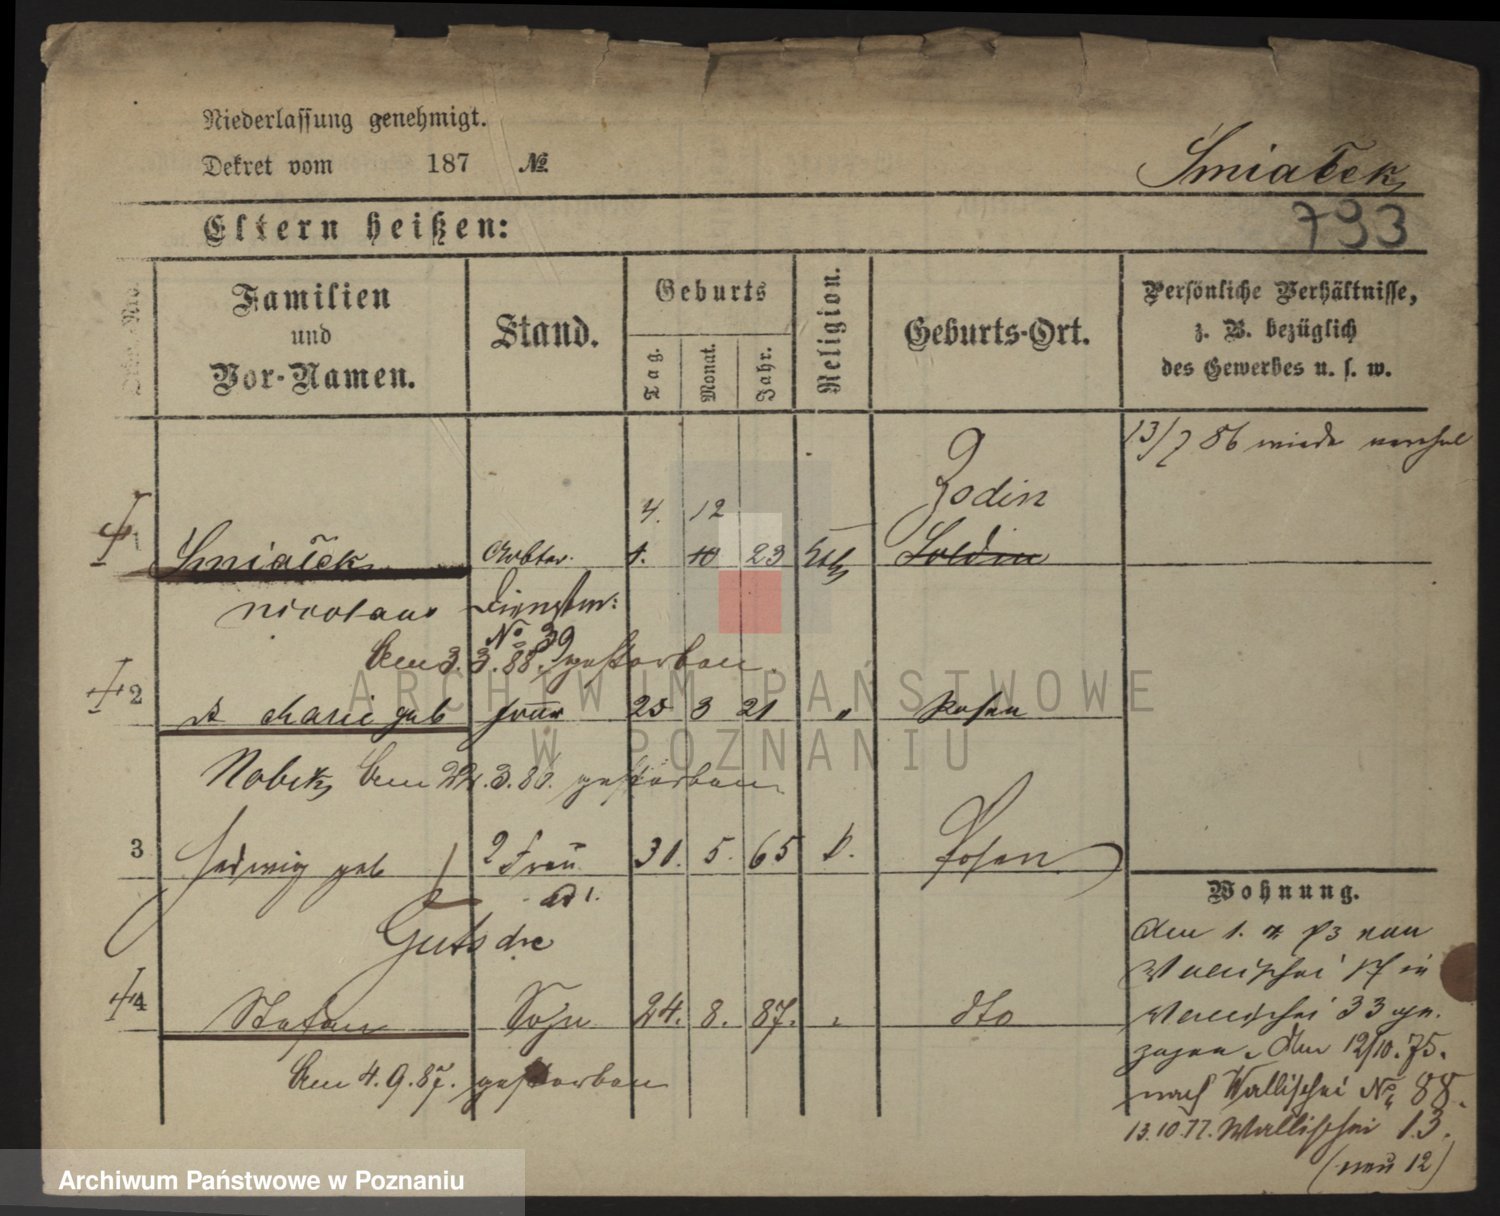 Niederlassung genehmigt.
Dekret vom 187 №
Smiałek
Eltern heißen:
793
Familien
und
Vor-Namen.
Stand.
Geburts
Tag.
Monat.
Jahr.
Religion.
Geburts-Ort.
Persönliche Verhältnisse,
z. B. bezüglich
des Gewerbes u. s. w.
13/7 86
Zodin
4. 12
1 Smiałek Arbtr. 1. 10 23 Kth Soldin
Nicolaus Dienstm:
No 39
Am 3.3.88. gestorben.
2 Marie geb Frau 25 3 21 " Posen
Nobik Am 24.3.80. gestorben
3 Hedwig geb 2 Frau 31. 5. 65 k. Posen
ad 1.
Gutsche
4 Stefan Sohn 24. 8. 87. " dto
Am 4.9.87. gestorben
Wohnung.
Am 1. 73 von
Wallischei 17 in
Wallischei 33 ge-
zogen. Am 12/10.75.
nach Wallischei No 88.
13.10.77. Wallischei 13.
(neu 12)
ARCHIWUM PAŃSTWOWE
W POZNANIU
Archiwum Państwowe w Poznaniu